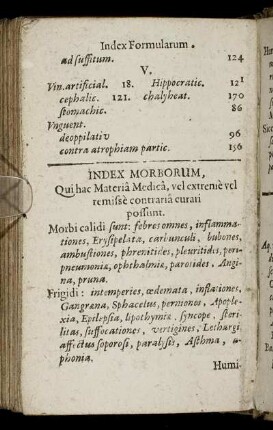 Index Formularum.
ad suffitum. 124
V.
Vin. artificial. 18. Hippocratic. 121
cephalic. 121. chalybeat. 170
stomachic. 86
Vnguent.
deoppilativ 96
contra atrophiam partic. 156
INDEX MORBORUM,
Qui hac Materiâ Medicâ, vel extremè vel
remissè contrariâ curati
possunt.
Morbi calidi sunt: febres omnes, inflamma-
tiones, Erysipelata, carbunculi, bubones,
ambustiones, phrenitides, pleuritides, peri-
pneumoniæ, ophthalmiæ, parotides, Angi-
na, pruna.
Frigidi: intemperies, œdemata, inflationes,
Gangræna, Sphacelus, perniones, Apople-
xia, Epilepsia, lipothymia, syncope, steri-
litas, suffocationes, vertigines, Lethargi,
affectus soporosi, paralysis, Asthma, a-
phonia.
Humi-